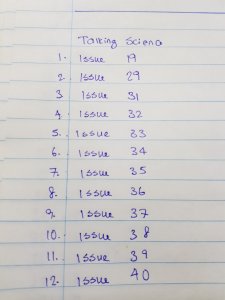 Talking Scienc
1. Issue 19
2. Issue 29
3. Issue 31
4. Issue 32
5. Issue 33
6. Issue 34
7. Issue 35
8. Issue 36
9. Issue 37
10. Issue 38
11. Issue 39
12. Issue 40